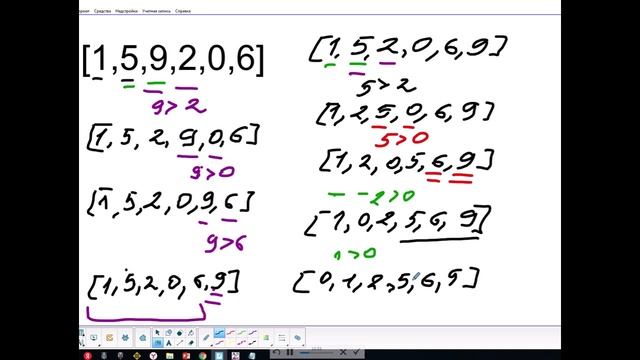 Средства Надстройки Учетная запись Справка
[1,5,9,2,0,6]
9>2
[1, 5, 2, 9, 0, 6]
9>0
[1, 5, 2, 0, 9, 6]
9>6
[1, 5, 2, 0, 6, 9]
[1, 5, 2, 0, 6, 9]
5>2
[1, 2, 5, 0, 6, 9]
5>0
[1, 2, 0, 5, 6, 9]
2>0
[1, 0, 2, 5, 6, 9]
1>0
[0, 1, 2, 5, 6, 9]